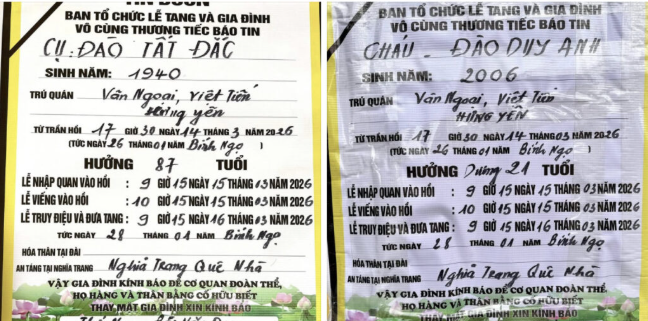 TIN BUỒN
BAN TỔ CHỨC LỄ TANG VÀ GIA ĐÌNH
VÔ CÙNG THƯƠNG TIẾC BÁO TIN
CỤ: ĐÀO TẤT ĐẮC
SINH NĂM: 1940
TRÚ QUÁN Vân Ngoại, Việt Tiến
Hưng yên
TỪ TRẦN HỒI 17 GIỜ 30 NGÀY 14 THÁNG 3 NĂM 2026
(TỨC NGÀY 26 THÁNG 01 NĂM Bính Ngọ)
HƯỞNG 87 TUỔI
LỄ NHẬP QUAN VÀO HỒI : 9 GIỜ 15 NGÀY 15 THÁNG 03 NĂM 2026
LỄ VIẾNG VÀO HỒI : 10 GIỜ 15 NGÀY 15 THÁNG 03 NĂM 2026
LỄ TRUY ĐIỆU VÀ ĐƯA TANG : 9 GIỜ 15 NGÀY 16 THÁNG 03 NĂM 2026
TỨC NGÀY 28 THÁNG 01 NĂM Bính Ngọ
HỎA THÁN TẠI ĐÀI
AN TÁNG TẠI NGHĨA TRANG Nghĩa Trang Quê Nhà
VẬY GIA ĐÌNH KÍNH BÁO ĐỂ CƠ QUAN ĐOÀN THỂ,
HỌ HÀNG VÀ THÂN BẰNG CỐ HỮU BIẾT
THAY MẶT GIA ĐÌNH XIN KÍNH BÁO
BAN TỔ CHỨC LỄ TANG VÀ GIA ĐÌNH
VÔ CÙNG THƯƠNG TIẾC BÁO TIN
CHÁU - ĐÀO DUY ANH
SINH NĂM: 2006
TRÚ QUÁN Vân Ngoại, Việt Tiến
HƯNG YÊN
TỪ TRẦN HỒI 17 GIỜ 30 NGÀY 14 THÁNG 03 NĂM 2026
(TỨC NGÀY 26 THÁNG 01 NĂM Bính Ngọ)
HƯỞNG Dương 21 TUỔI
LỄ NHẬP QUAN VÀO HỒI : 9 GIỜ 15 NGÀY 15 THÁNG 03 NĂM 2026
LỄ VIẾNG VÀO HỒI : 10 GIỜ 15 NGÀY 15 THÁNG 03 NĂM 2026
LỄ TRUY ĐIỆU VÀ ĐƯA TANG : 9 GIỜ 15 NGÀY 16 THÁNG 03 NĂM 2026
TỨC NGÀY 28 THÁNG 01 NĂM Bính Ngọ
HỎA THÁN TẠI ĐÀI
AN TÁNG TẠI NGHĨA TRANG Nghĩa Trang Quê Nhà
VẬY GIA ĐÌNH KÍNH BÁO ĐỂ CƠ QUAN ĐOÀN THỂ,
HỌ HÀNG VÀ THÂN BẰNG CỐ HỮU BIẾT
THAY MẶT GIA ĐÌNH XIN KÍNH BÁO